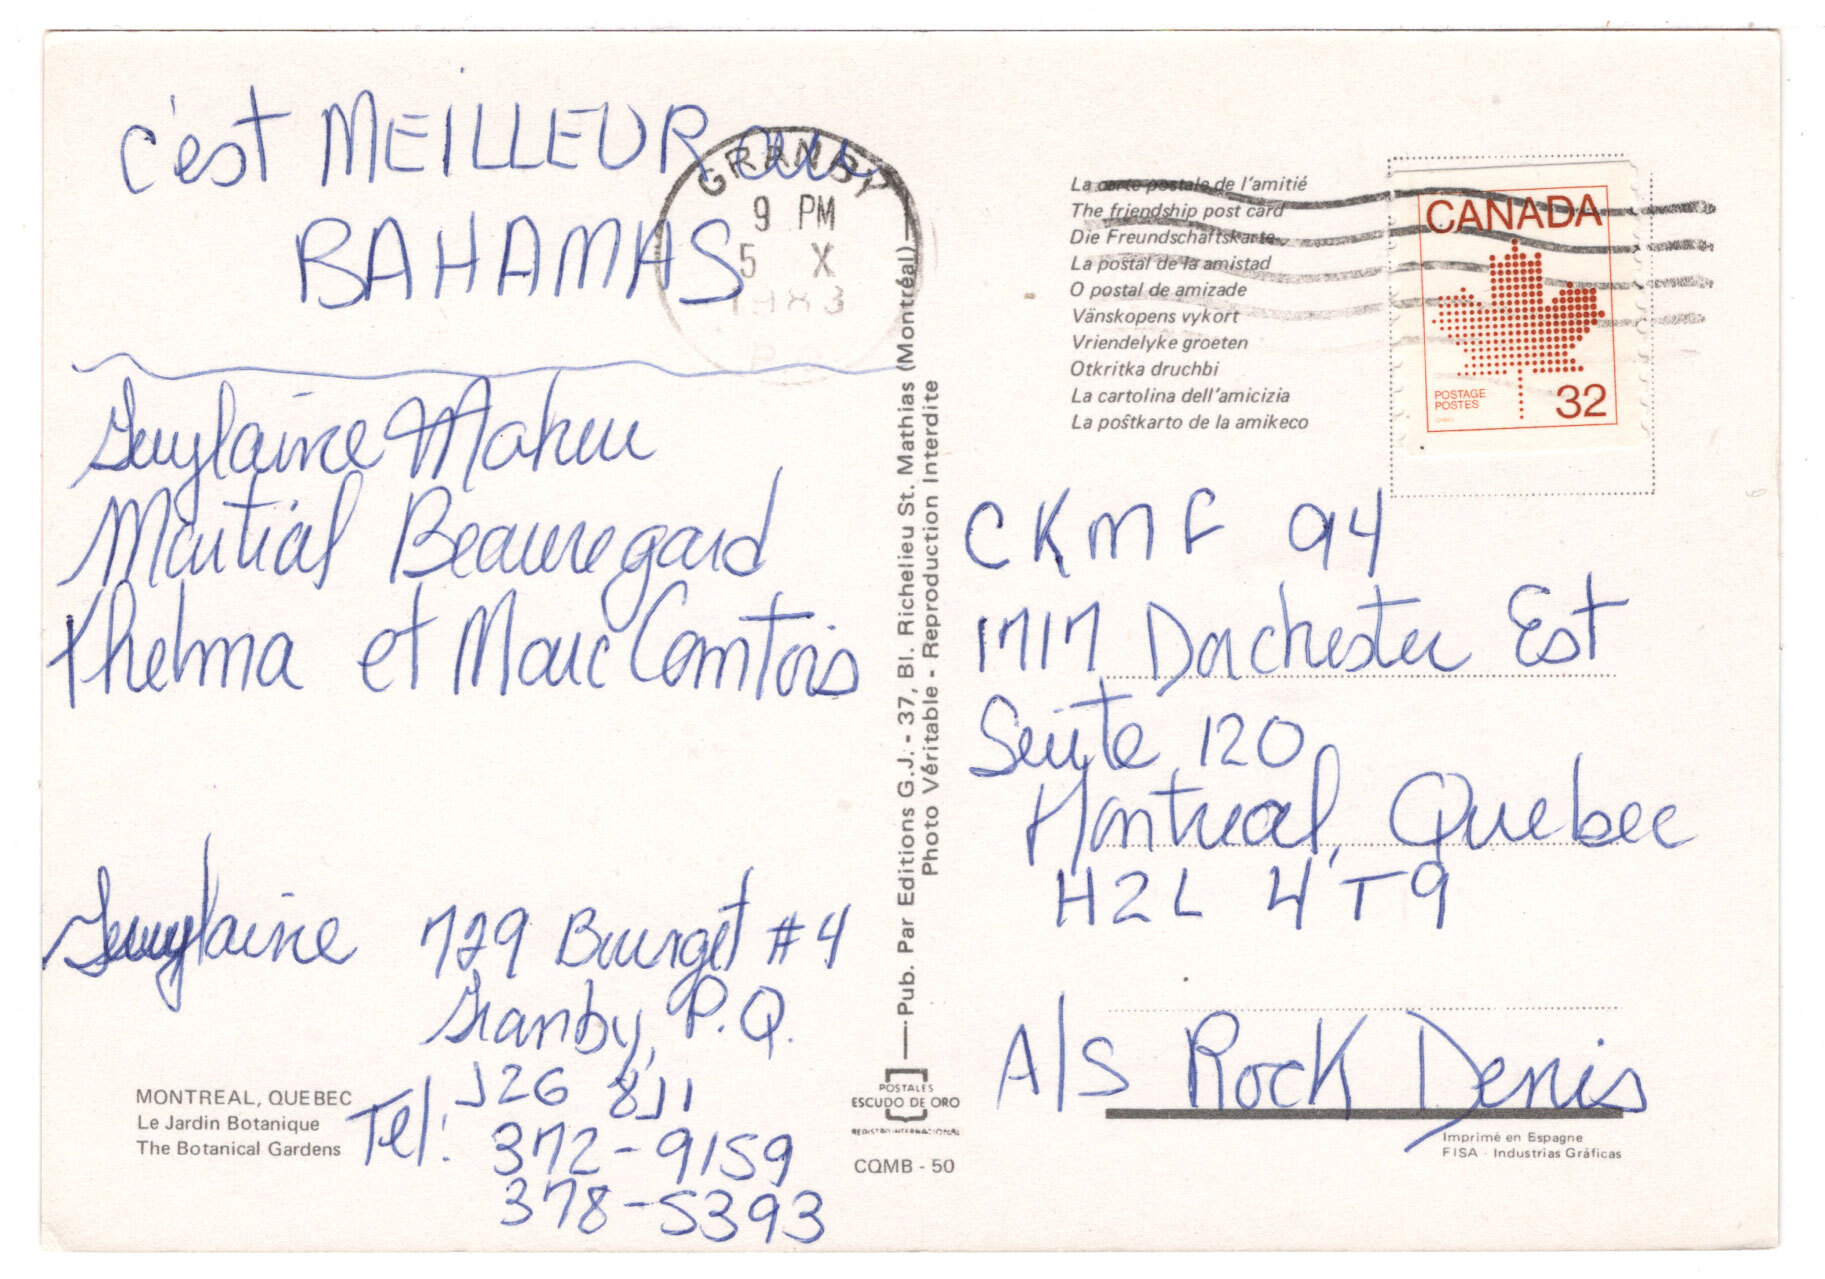 c'est MEILLEUR aux
BAHAMAS
Guylaine Maheu
Martial Beauregard
Thelma et Marc Comtois
Guylaine 729 Bourget #4
Granby, P.Q.
J2G 8J1
Tel: 372-9159
378-5393
MONTREAL, QUEBEC
Le Jardin Botanique
The Botanical Gardens
GRANBY
9 PM
5 X
1983
Pub. Par Editions G.J. - 37, Bl. Richelieu St. Mathias (Montréal)
Photo Véritable - Reproduction Interdite
POSTALES
ESCUDO DE ORO
REGISTRO INTERNACIONAL
CQMB - 50
La carte postale de l'amitié
The friendship post card
Die Freundschaftskarte
La postal de la amistad
O postal de amizade
Vänskopens vykort
Vriendelyke groeten
Otkritka druchbi
La cartolina dell'amicizia
La poŝtkarto de la amikeco
CANADA
POSTAGE
POSTES
32
CKMF 94
1717 Dorchester Est
Suite 120
Montreal, Quebec
H2L 4T9
A/S Rock Denis
Imprimé en Espagne
FISA - Industrias Gráficas